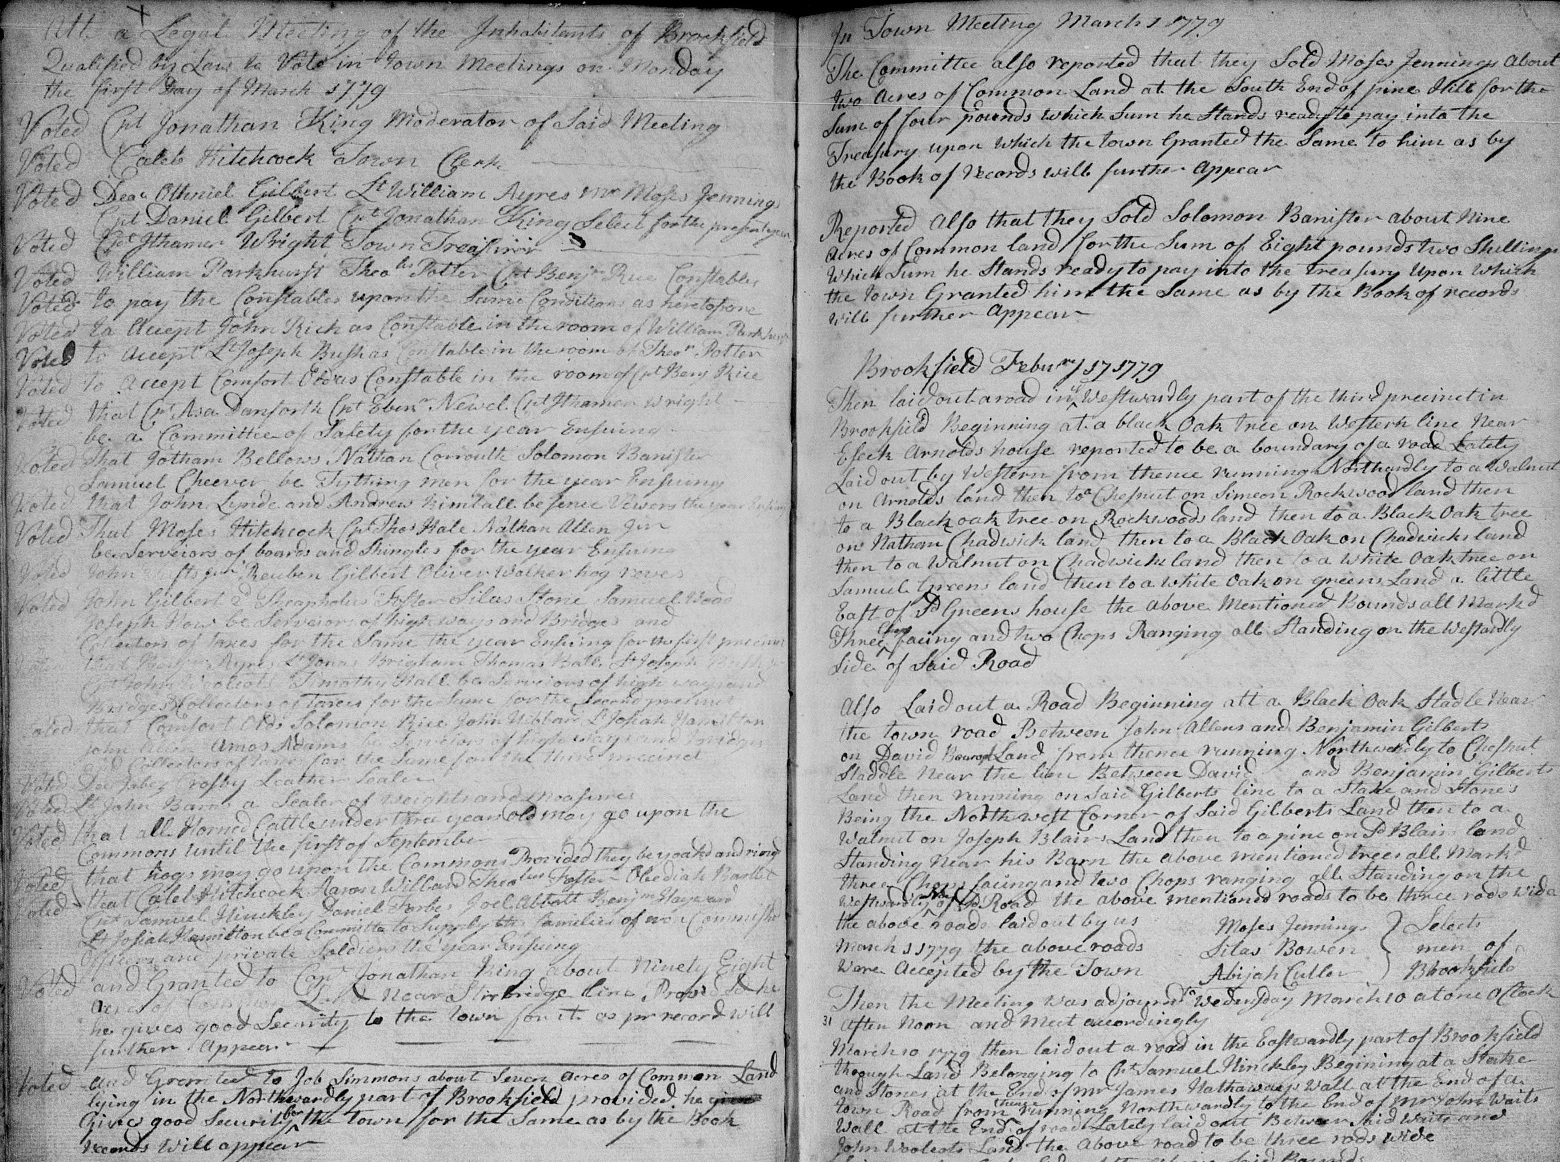 Att a Legal Meeting of the Inhabitants of Brookfield
Qualified by Law to Vote in Town Meetings on Monday
the first Day of March 1779
Voted Cpt Jonathan King Moderator of Said Meeting
Voted Caleb Hitchcock Town Clerk
Voted Deac Othniel Gilbert Lt William Ayres mr Moses Jennings
Cpt Daniel Gilbert Cpt Jonathan King Select for the present year
Voted Cpt Ithamer Wright Town Treasurer
Voted William Parkhurst Theo Potter Cpt Benjn Rice Constables
Voted to pay the Constables upon the Same Conditions as heretofore
Voted to Accept John Rich as Constable in the room of William Parkhurst
Voted to Accept Lt Joseph Bush as Constable in the room of Theor Potter
Voted to Accept Comfort Olds as Constable in the room of Cpt Benj Rice
Voted that Cpt Asa Danforth Cpt Ebenr Newel Cpt Ithamer Wright
be a Committee of Safety for the year Ensuing
Voted That Jotham Bellows Nathan Corrouth Solomon Banister
Samuel Cheever be Tything men for the year Ensuing
Voted that John Lynde and Andrew Kimball be fence Viewers the year
Voted That Moses Hitchcock Cpt Thos Hale Nathan Allen Jun
be Serveiors of boards and Shingles for the year Ensuing
Voted John Reuben Gilbert Oliver Walker hog reves
Voted John Gilbert Foster Silas Stone Samuel Wood
Joseph How be Serveiors of high ways and Bridges and
Collectors of Taxes for the Same the year Ensuing for the first precinct
that Ayres Lt Jonas Brigham Thomas Ball Lt Joseph
Cpt John Timothy Hall be Serveiors of high ways and
Bridges Collectors of Taxes for the Same for the Second precinct
Voted that Comfort Olds Solomon Rice John Lt Josiah Hamilton
John Amos Adams be Serveiors of high ways and bridges
and Collectors of Taxes for the Same for the third precinct
Voted Dea Jabez Crosby Leather Sealer
Voted Lt John a Sealer of weights and Measures
Voted that all Horned Cattle under three year old may go upon the
Commons until the first of September
Voted that hogs may go upon the Commons Provided they be yoaked and ringd
Voted that Caleb Hitchcock Aaron Willard Foster Obediah Bartlet
Cpt Samuel Hinckley Daniel Forbes Joel Abbott Benjn Hayward
Lt Josiah Hamilton be a Committe to Supply the families of non Commissd
officers and private Soldiers the year Ensuing
Voted and Granted to Cpt Jonathan King about Ninety Eight
acres of Common Land near Sturbridge line Provided he
he gives good Security to the Town for it as pr record will
further Appear
Voted and Granted to Job Simmons about Seven Acres of Common Land
lying in the Northwardly part of Brookfield provided he
Gives good Security to the Town for the Same as by the Book
records will appear
In Town Meeting March 1 1779
The Committee also reported that they Sold Moses Jennings About
two Acres of Common Land at the South End of pine Hill for the
Sum of four pounds which Sum he Stands ready to pay into the
Treasury upon which the Town Granted the Same to him as by
the Book of records will further Appear
Reported Also that they Sold Solomon Banister about Nine
Acres of Common land for the Sum of Eight pounds two Shillings
Which Sum he Stands ready to pay into the treasury upon which
the town Granted him the Same as by the Book of records
will further Appear
Brookfield Febury 17 1779
Then laid out a road in ye Westwardly part of the third precinct in
Brookfield Beginning at a black Oak tree on Western line Near
Eleck Arnolds house reported to be a boundary of a road Lately
Laid out by Western from thence running Northardly to a walnut
on Arnolds land then to a Chesnut on Simeon Rockwood land then
to a Black oak tree on Rockwoods land then to a Black Oak tree
on Nathan Chadwick land then to a Black Oak on Chadwicks land
then to a walnut on Chadwicks land then to a white Oak tree on
Samuel Greens land then to a white Oak on greens Land a little
East of Sd Greens house the above Mentioned Bounds all Markd
Three Chops facing and two Chops Ranging all Standing on the Westardly
Side of Said Road
Also Laid out a Road Beginning att a Black Oak Stadle Near
the town road Between John Allens and Benjamin Gilberts
on David Land from thence running Northwardly to Chesnut
Staddle Near the line Between David and Benjamin Gilberts
Land then running on Said Gilberts line to a Stake and Stones
Being the Northwest Corner of Said Gilberts Land then to a
Walnut on Joseph Blairs Land then to a pine on Sd Blairs land
Standing Near his Barn the above mentioned trees all Markd
three Chops facing and two Chops ranging all Standing on the
Westward Side of Sd Road the above mentioned roads to be three rods wide
the above roads laid out by us
March 1 1779 the above roads
Were Accepted by the Town
Moses Jennings
Silas Bowen
Abijah Cutler
Selects
men of
Brookfield
Then the Meeting was adjoyrnd to Wedensday March 10 at one a Clock
31 After Noon and Meet accordingly
March 10 1779 then laid out a road in the Eastwardly part of Brookfield
through Land Belonging to Cpt Samuel Hinckley Begining at a Stake
and Stones at the End of mr James Hathaways wall at the End of a
town Road from thence running Northwardly to the End of Mr John Waits
Wall at the End of road Lately laid out Between Said Waits and
John Woolcots Land the Above road to be three rods wide